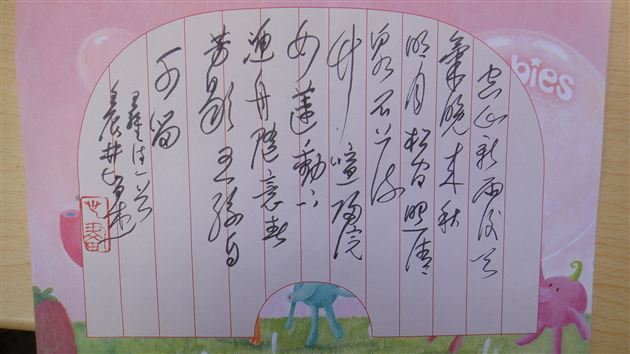 空山新雨后天
氣晚来秋
明月松间照清
泉石上流
竹喧歸浣
女蓮動下
漁舟隨意春
芳歇王孫自
可留
bies